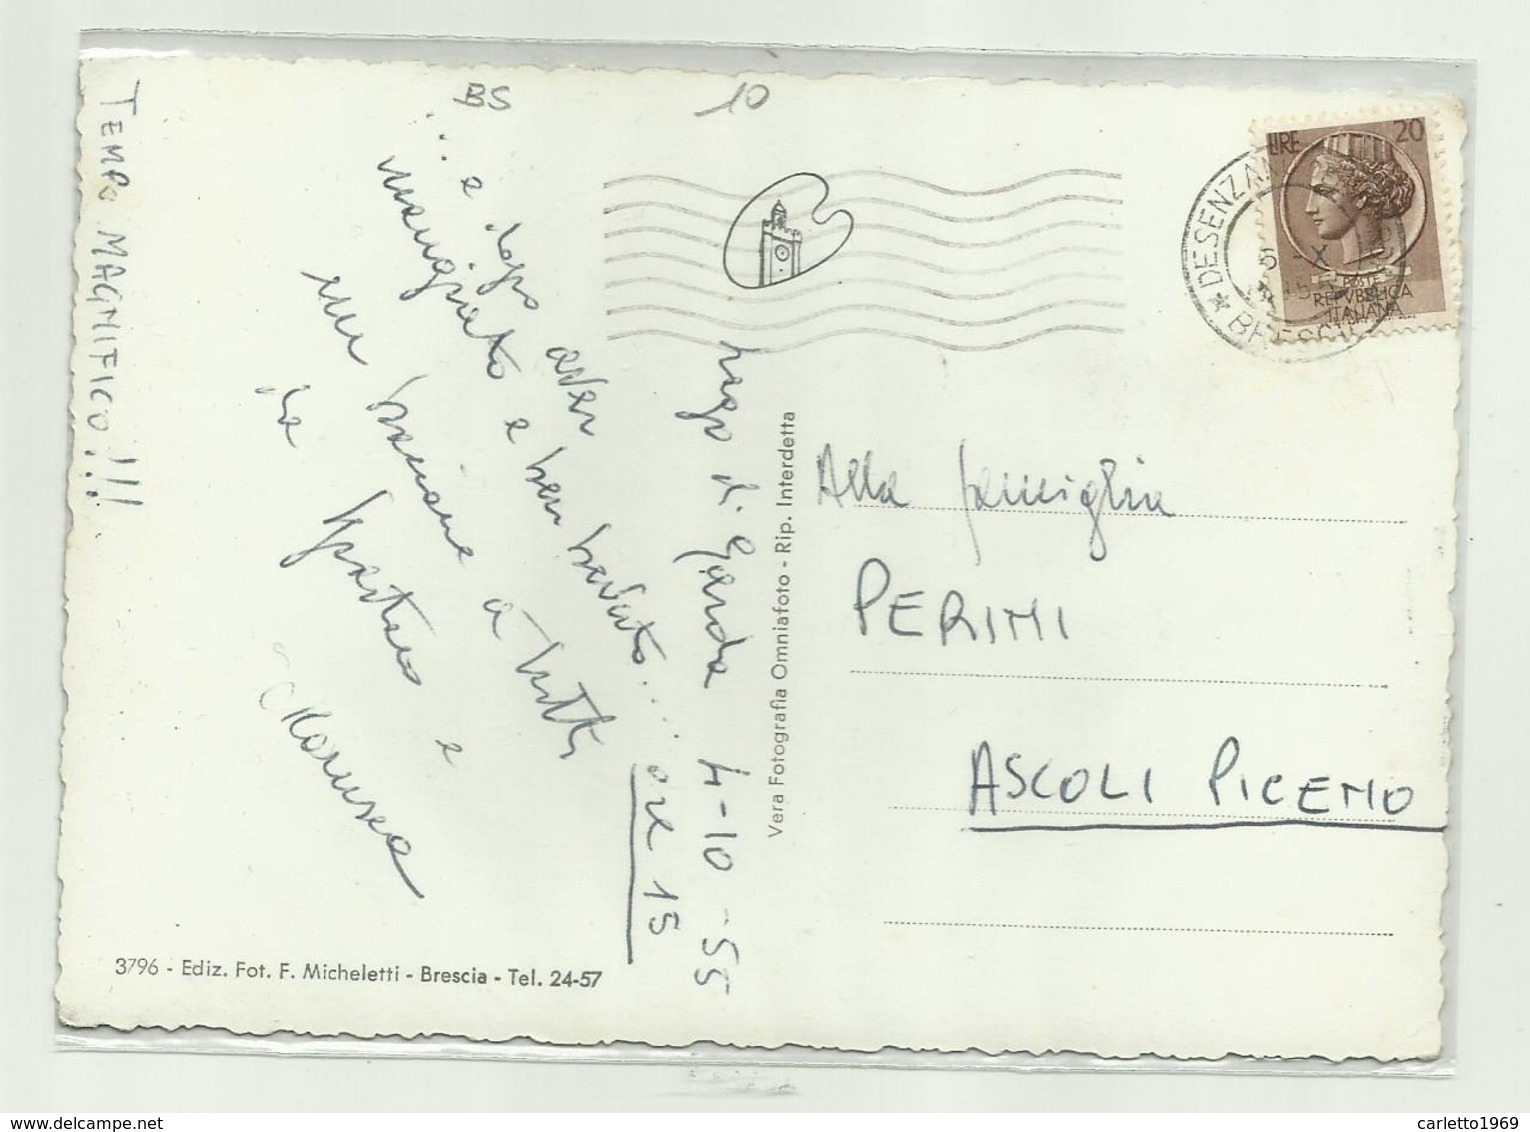 BS
10
TEMPO MAGNIFICO!!!
Lago di Garda 4-10-55
ore 15
... e dopo aver
mangiato e ben bevuto....
un bacione a tutti
da Spartaco e
Marusca
LIRE 20
POSTE
REPVBBLICA
ITALIANA
DESENZAN
BRESCIA
Vera Fotografia Omniafoto - Rip. Interdetta
Alla famiglia
PERINI
ASCOLI PICENO
3796 - Ediz. Fot. F. Micheletti - Brescia - Tel. 24-57
delcampe.net
carletto1969